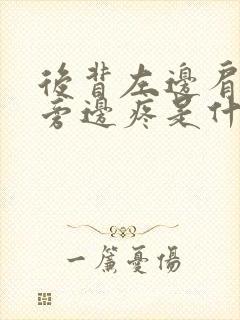 後背左邊肩
旁邊疼是什
一簾憂傷